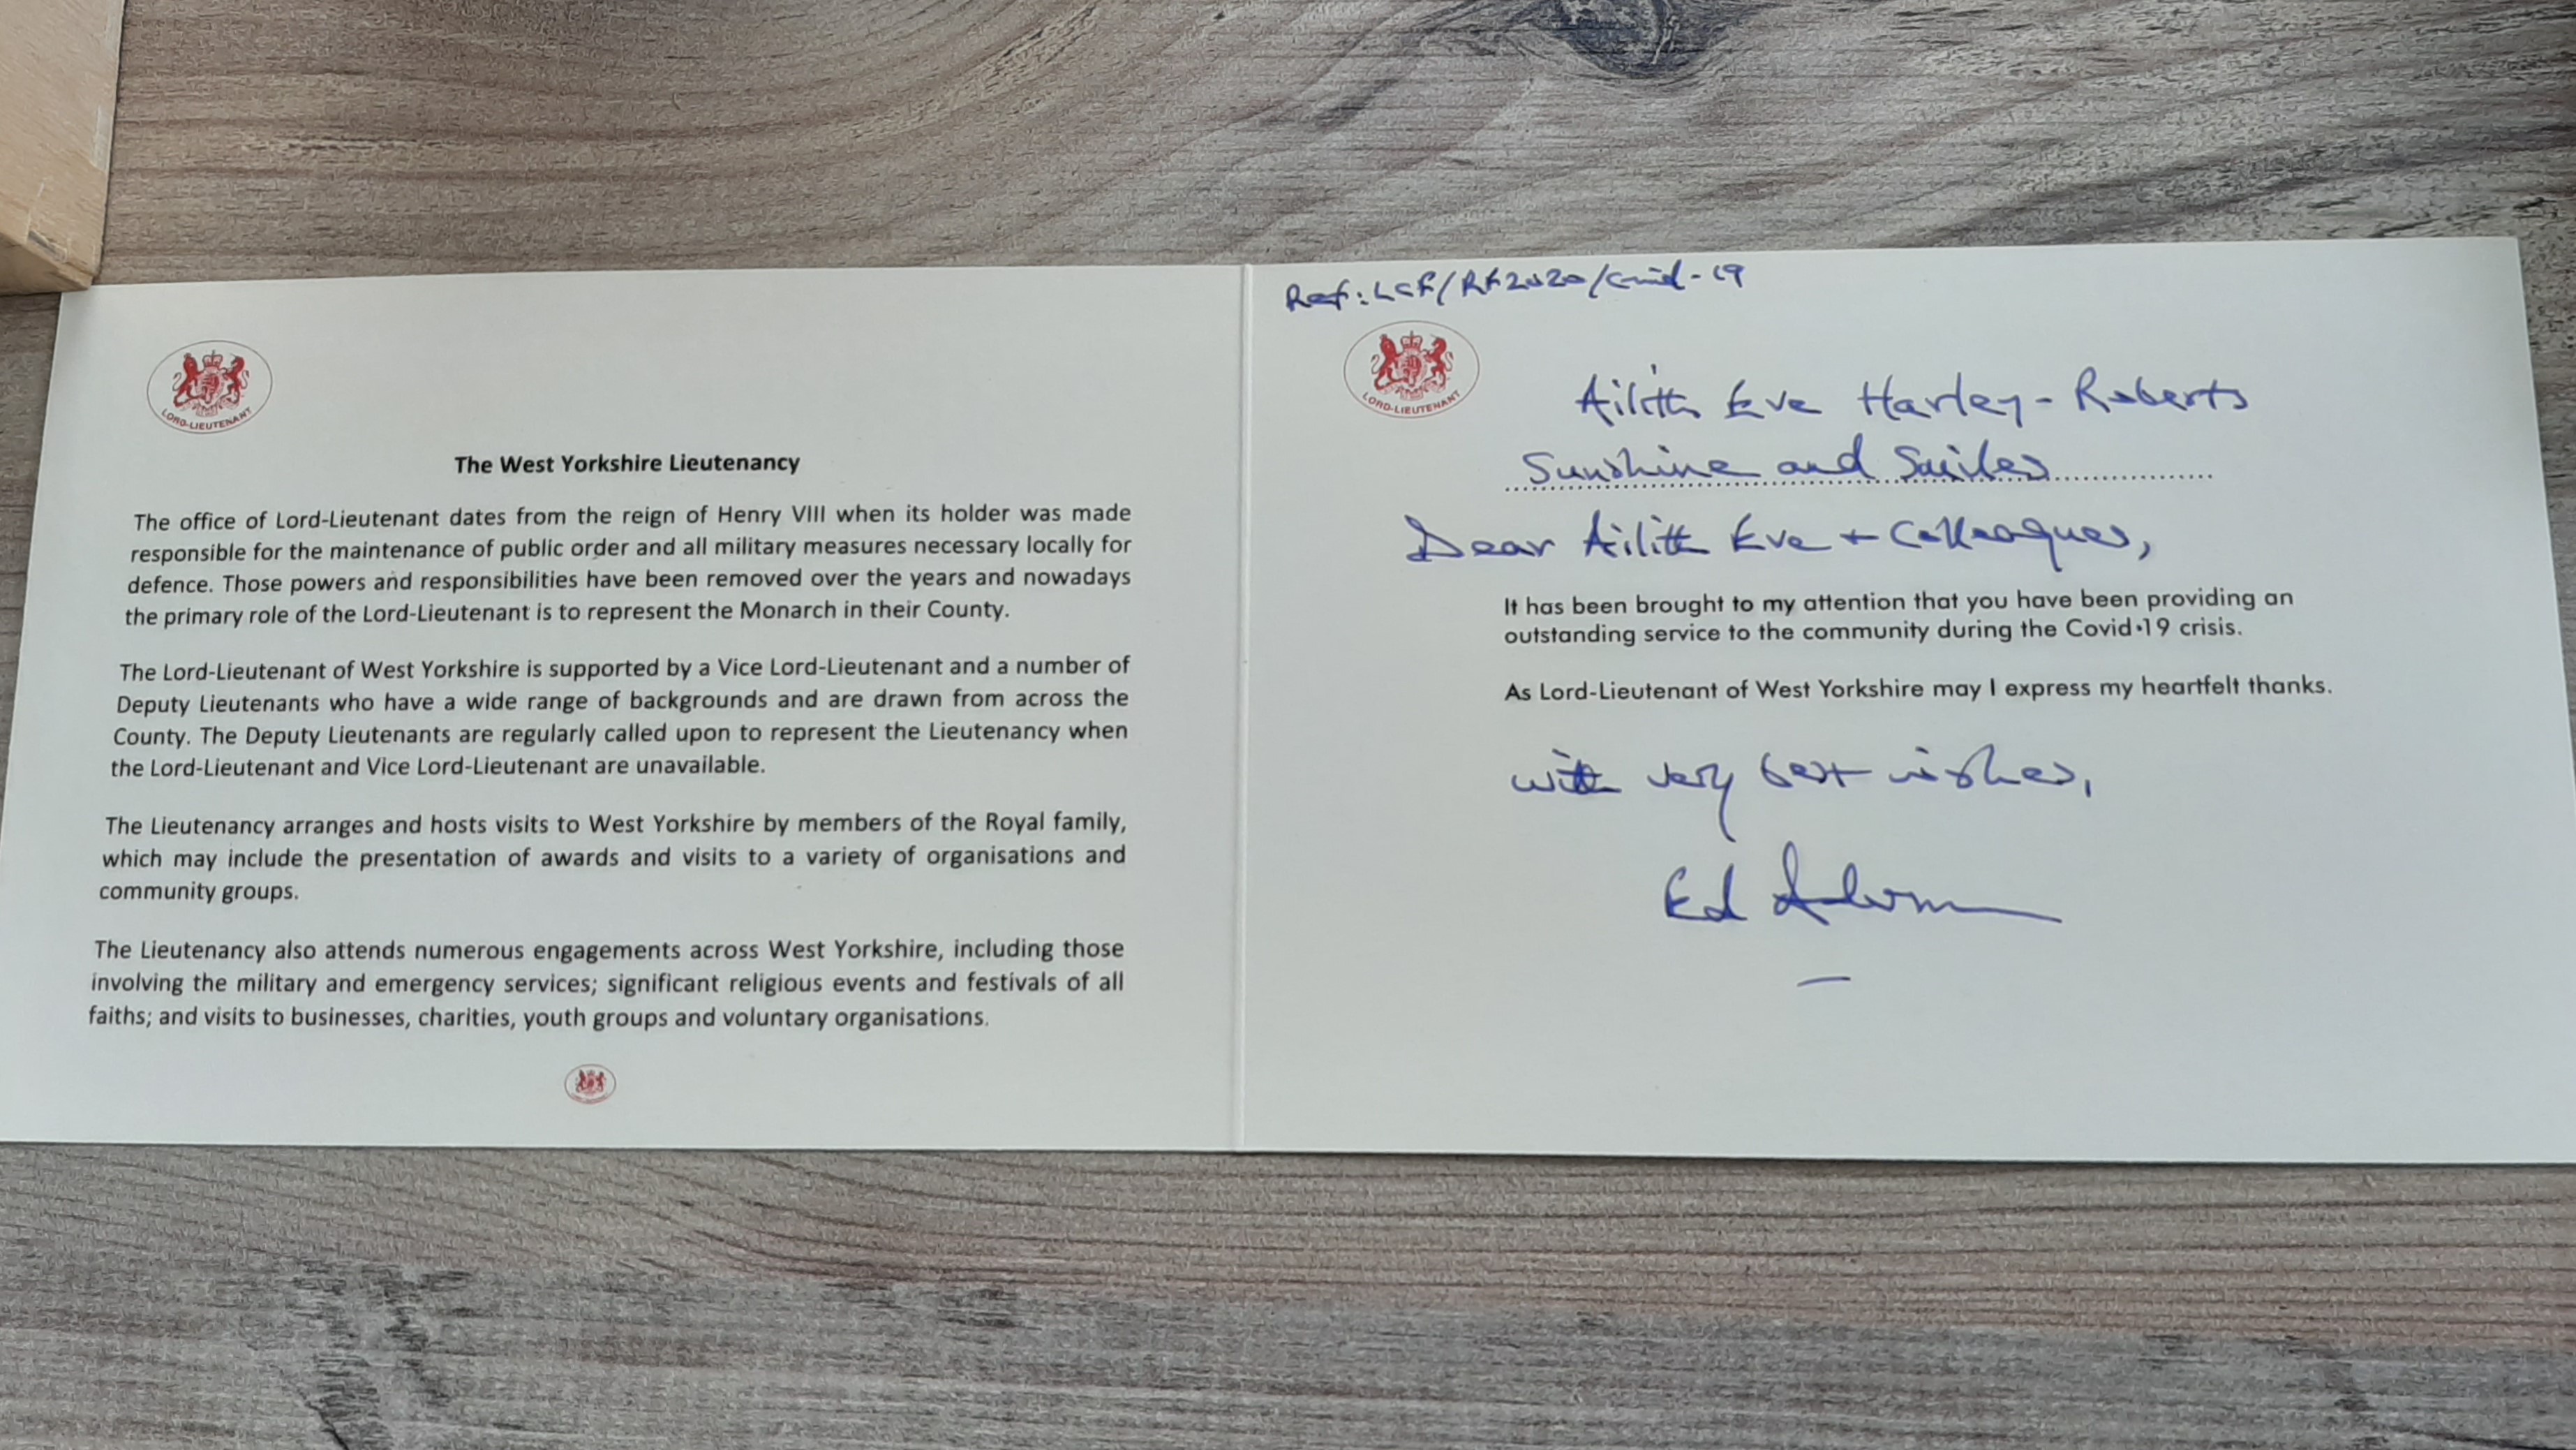 LORD-LIEUTENANT
The West Yorkshire Lieutenancy
The office of Lord-Lieutenant dates from the reign of Henry VIII when its holder was made
responsible for the maintenance of public order and all military measures necessary locally for
defence. Those powers and responsibilities have been removed over the years and nowadays
the primary role of the Lord-Lieutenant is to represent the Monarch in their County.
The Lord-Lieutenant of West Yorkshire is supported by a Vice Lord-Lieutenant and a number of
Deputy Lieutenants who have a wide range of backgrounds and are drawn from across the
County. The Deputy Lieutenants are regularly called upon to represent the Lieutenancy when
the Lord-Lieutenant and Vice Lord-Lieutenant are unavailable.
The Lieutenancy arranges and hosts visits to West Yorkshire by members of the Royal family,
which may include the presentation of awards and visits to a variety of organisations and
community groups.
The Lieutenancy also attends numerous engagements across West Yorkshire, including those
involving the military and emergency services; significant religious events and festivals of all
faiths; and visits to businesses, charities, youth groups and voluntary organisations.
Ref: LCF/RF2020/Covid-19
LORD-LIEUTENANT
Ailith Eve Harley-Roberts
Sunshine and Smiles
Dear Ailith Eve + Colleagues,
It has been brought to my attention that you have been providing an
outstanding service to the community during the Covid•19 crisis.
As Lord-Lieutenant of West Yorkshire may I express my heartfelt thanks.
with very best wishes,
Ed